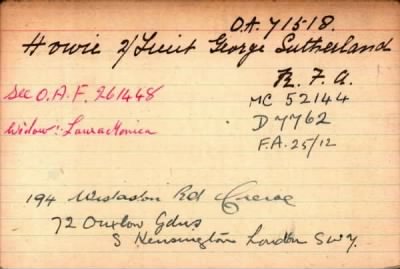 O.A. 71518.
Howie 2/Lieut George Sutherland
R. F. A.
See O.A.F. 261448
MC 52144
Widow: Laura Monica
D 7762
F.A. 25/12
194 Rd Crewe
72 Onslow Gdns
S Kensington London SW7.